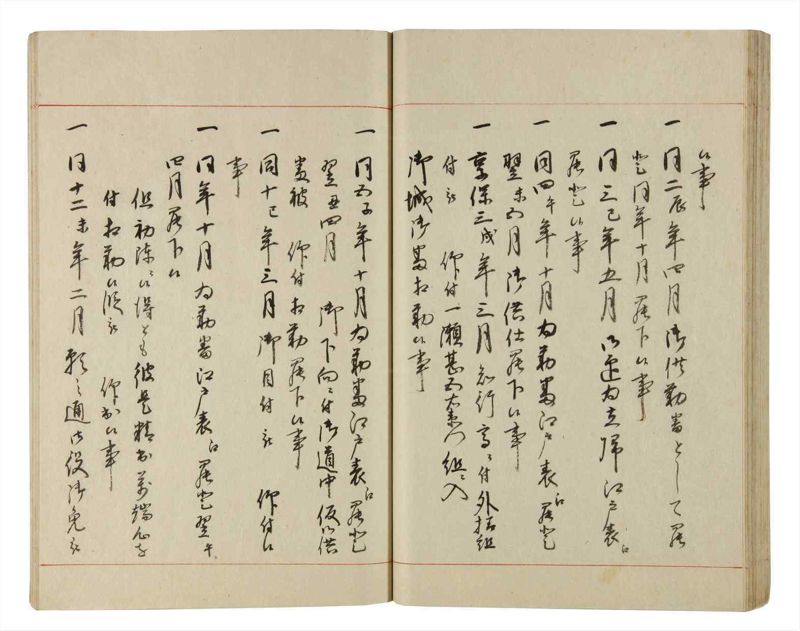 候事
一同二辰年四月御供勤番として罷
登同年十月罷下候事
一同三巳年五月御迎為立帰江戸表江
罷登候事
一同四午年十月為勤番江戸表江罷登
翌未五月御供仕罷下候事
一享保三戌年三月知行高ニ付外様組
付被 仰付一瀬甚五左衛門組ニ入
御城御番相勤候事
一同五子年十月為勤番江戸表江罷登
翌丑四月 御下向ニ付御道中仮御供
番被 仰付相勤罷下候事
一同十巳年三月御目付被 仰付候
事
一同年十月為勤番江戸表江罷登翌午
四月罷下候
但初陳ニ候得とも彼是精出万端心を
付相勤候段被 仰出候事
一同十二未年二月願之通御役御免被